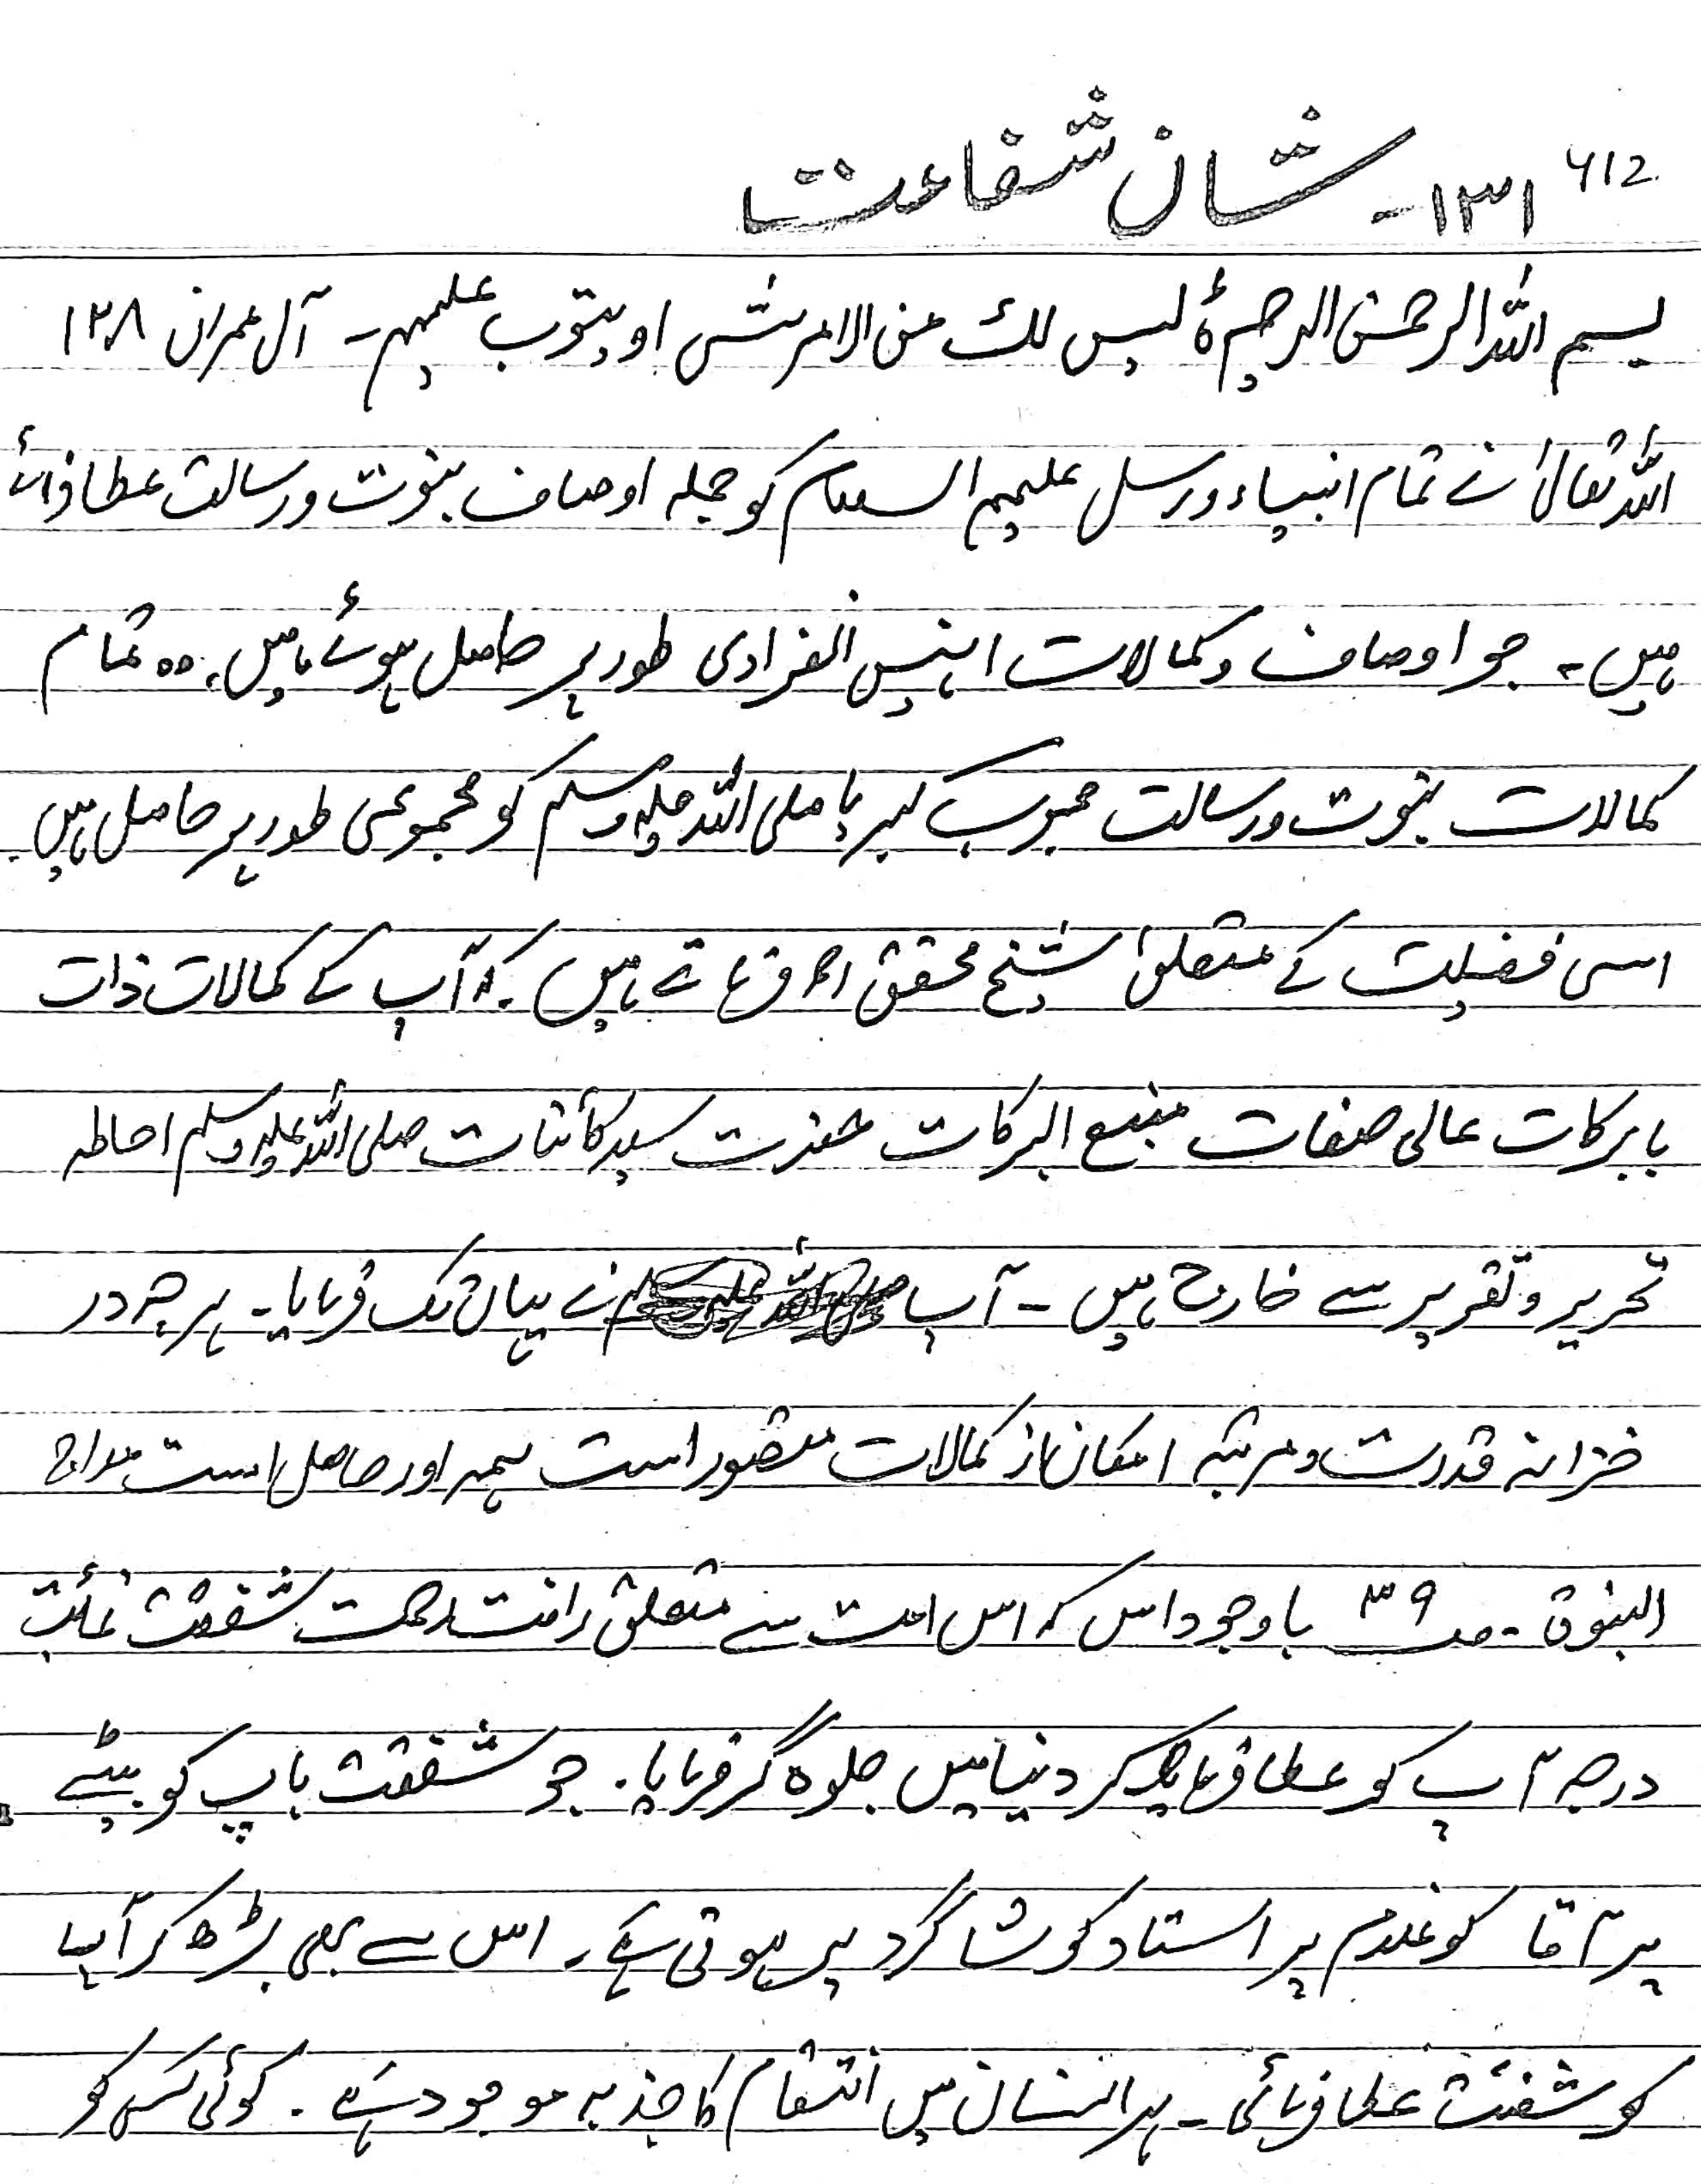 612
۱۳۱۔ شان شفاعت
بسم اللہ الرحمن الرحیم ہ لیس لک من الامر شئ او یتوب علیہم۔ آل عمران ۱۲۸
اللہ تعالیٰ نے تمام انبیاء و رسل علیہم السلام کو جملہ اوصاف نبوت و رسالت عطا فرمائے
ہیں۔ جو اوصاف و کمالات انہیں انفرادی طور پر حاصل ہوئے ہیں، وہ تمام
کمالات نبوت و رسالت محبوب کبریا صلی اللہ علیہ وسلم کو مجموعی طور پر حاصل ہیں۔
اسی فضیلت کے متعلق شیخ محقق فرماتے ہیں۔ کہ آپ کے کمالات ذات
بابرکات عالی صفات منبع البرکات حضرت سید کائنات صلی اللہ علیہ وسلم احاطہ
تحریر و تقریر سے خارج ہیں۔ آپ نے یہاں تک فرمایا۔ ہر چہ در
خزانہ قدرت و مرتبہ امکان از کمالات متصور است ہمہ اور حاصل است مدارج
النبوۃ۔ صہ ۳۹ باوجود اس کہ اس امت سے متعلق رافت رحمت شفقت غائت
درجہ آپ کو عطا فرما کر دنیا میں جلوہ گر فرمایا۔ جو شفقت باپ کو بیٹے
پر آقا کو غلام پر استاد کو شاگرد پر ہوتی ہے۔ اس سے بھی بڑھ کر آپ
کو شفقت عطا فرمائی۔ ہر انسان میں انتقام کا جذبہ موجود ہے۔ کوئی کسی کو